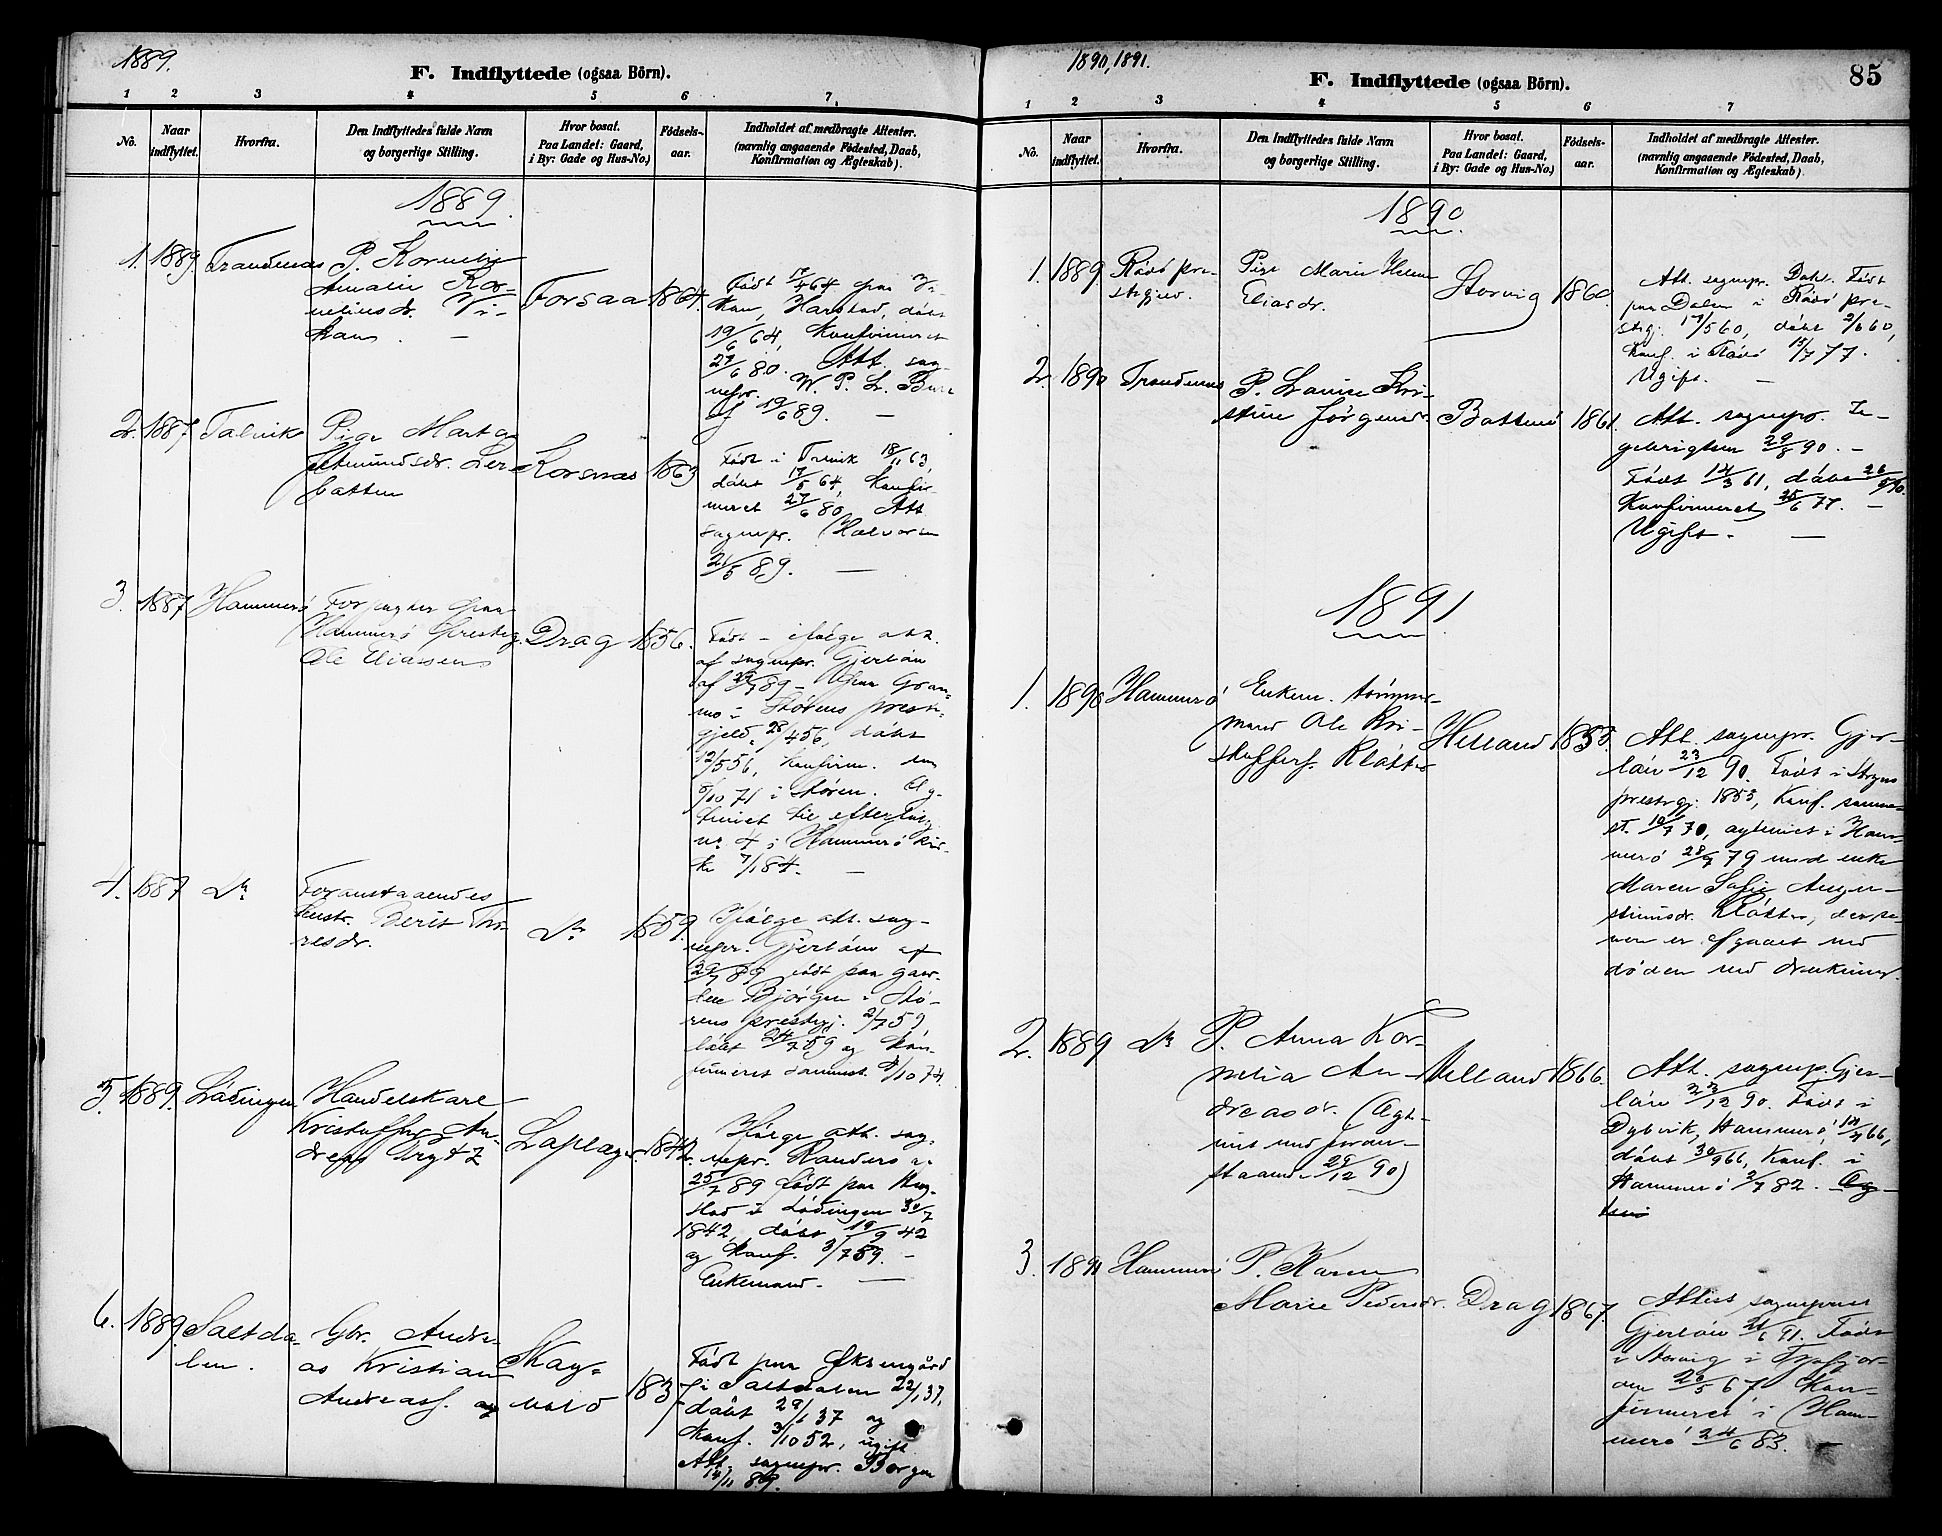 1889.
F. Indflyttede (ogsaa Börn).
1 2 3 4 5 6 7
No.
Naar indflyttet.
Hvorfra.
Den Indflyttedes fulde Navn
og borgerlige Stilling.
Hvor bosat.
Paa Landet: Gaard,
i By: Gade og Hus-No.)
Fødsels-
aar.
Indholdet af medbragte Attester.
(navnlig angaaende Fødested, Daab,
Konfirmation og Ægteskab).
1889.
1. 1889. Trandenas
P. Kornelie
Amalie Kor-
neliusdr. Vi-
kan. —
Forsaa
1864.
Født 17/4 64 paa Vi-
kan, Harstad, døbt
19/6 64, Konfirmeret
27/6 80. Att. sog-
nepr. W. P. L.
af 19/6 89. —
2. 1887 Talvik
Pige Marta
Ler-
batten
Korsnæs
1863
Født i Talvik 18/11 63,
døbt 17/5 64, Konfir-
meret 27/6 80, Att.
sognepr. Halvorsen
21/5 89. —
3. 1887 Hammerø
Forpagter paa
Hammerø presteg.
Ole Eliassen
Drag
1856.
Født - ifølge att.
af sognepr. Gjerløw
af 29/7 89 - paa Gran-
mo i Størens preste-
gjeld, 28/4 56, døbt
12/5 56, konfirm.
8/10 71 i Støren. Æg-
teviet til efterfølg.
nr 4 i Hammerø kir-
ke 7/1 84. —
4. 1887 Do
Foranstaaendes
hustr. Berit To-
resdr.
Do
1859.
Ifølge att. sog-
nepr. Gjerløw af
29/7 89 født paa gaar-
den Bjørgen i Stø-
rens prestegj. 2/7 59,
døbt 24/7 59 og kon-
firmeret sammest. 4/10 74.
5. 1889. Lødingen
Handelskarl
Kristoffer An-
dreas
Laplager.
1842.
Ifølge att. sog-
nepr. Randers
25/7 89 født paa
i Lødingen 30/7
1842, døbt 19/9 42
og Konf. 3/7 59. -
Enkemand. —
6. 1889. Saltda-
len.
Gbr. Andre-
as Kristian
Andreass. og
Skog-
vold
1837
Født paa Øksengård
i Saltdalen 22/1 37,
døbt 29/1 37 og
Konf. 3/10 52, ugift.
Att. sognepr. Borgen
14/11 89.
1890, 1891.
F. Indflyttede (ogsaa Börn).
85
1 2 3 4 5 6 7
No.
Naar
indflyttet.
Hvorfra.
Den Indflyttedes fulde Navn
og borgerlige Stilling.
Hvor bosat.
Paa Landet: Gaard,
i By: Gade og Hus-No.)
Fødsels-
aar.
Indholdet af medbragte Attester.
(navnlig angaaende Fødested, Daab,
Konfirmation og Ægteskab).
1890.
1. 1889 Rødø pre-
stegjeld.
Pige Marie Helene
Eliasdr.
Storvig
1860.
Att. sognepr. Dahl. Født
paa Dalen i Rødø pre-
stegj. 17/5 60, døbt 2/6 60,
Konf. i Rødø 15/7 77.
Ugift. —
2. 1890 Trandenas
P. Lovise Kri-
stine Jørgensdr.
1861.
Att. sognepr. In-
gebrigtsen 29/8 90. —
Født 14/3 61, døbt
Konfirmeret 25/6 77. —
Ugift. —
1891.
1. 1890 Hammerø
Enkem. tømmer-
mand Ole Kri-
stoffers. Kløtten
Helland
1853.
Att. sognepr. Gjer-
løw 23/12 90. Født i Stryns
prestegj. 1853, Konf. samme-
st. 10/7 70, ægteviet i Ham-
merø 28/7 79 med enke
Maren Sofie Augu-
stinusdr. Kløtten, der se-
nere er afgaaet ved
døden ved drukning.
2. 1889 Do
P. Anna Kor-
nelia An-
dreasdr. (Ægt-
viet med foran-
staaende 29/12 90)
Helland
1866.
Att. sognep. Gjer-
løw 23/12 90. Født i
Dybvik, Hammerø, 14/7 66,
døbt 30/9 66, Konf. i
Hammerø 2/7 82. Æg-
tevi
3. 1891 Hammerø
P. Karen
Marie Pedersdr.
Drag
1867.
Attest sogneprest
Gjerløw 21/6 91. Født
i Storvig i Tysfjor-
den 20/5 67 Kon-
firmeret i Ham-
merø 24/6 83. —